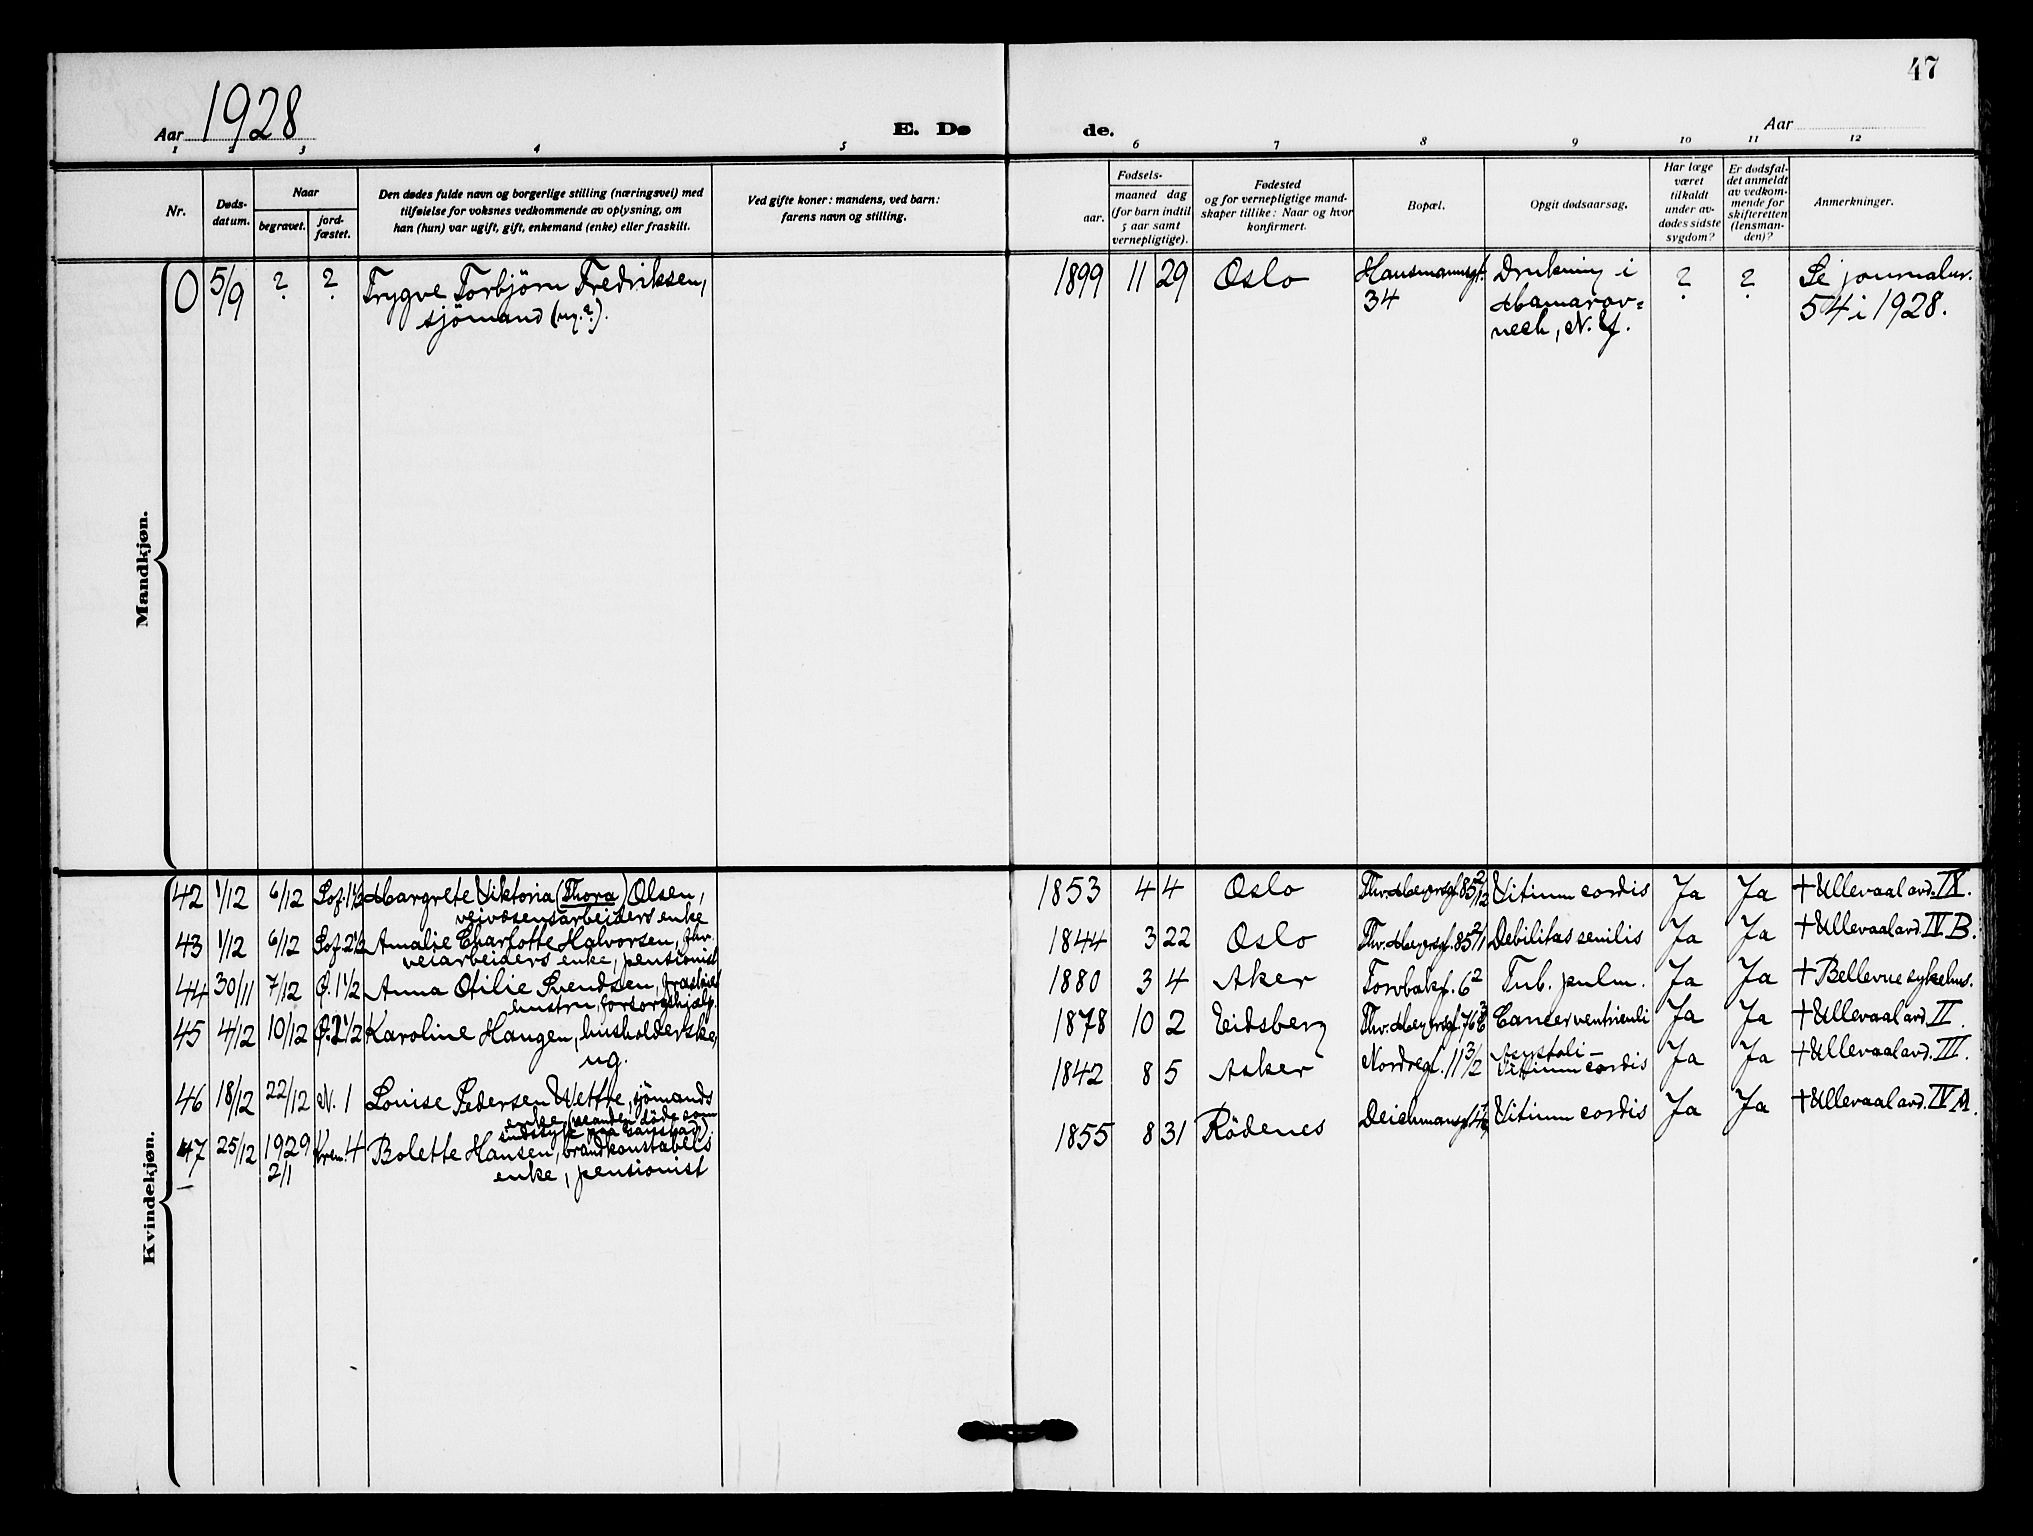 47
Aar 1928
E. Dø de.
Aar
1 2 3 4 5 6 7 8 9 10 11 12
Nr.
Døds-
datum.
Naar
begravet.
jord-
fæstet.
Den dødes fulde navn og borgerlige stilling (næringsvei) med
tilføielse for voksnes vedkommende av oplysning, om
han (hun) var ugift, gift, enkemand (enke) eller fraskilt.
Ved gifte koner: mandens, ved barn:
farens navn og stilling.
Fødsels-
aar.
maaned dag
(for barn indtil
5 aar samt
vernepligtige).
Fødested
og for vernepligtige mand-
skaper tillike: Naar og hvor
konfirmert.
Bopæl.
Opgit dødsaarsag.
Har læge
været
tilkaldt
under av-
dødes sidste
sygdom?
Er dødsfal-
det anmeldt
av vedkom-
mende for
skifteretten
(lensman-
den)?
Anmerkninger.
Mandkjøn.
0 5/9 ? ? Trygve Torbjörn Fredriksen, 1899 11 29 Oslo Hausmannsgt. Drukning i ? ? Se journalnr.
sjömand (ug.?). 34 Mamarov- 54 i 1928.
neck, N.Y.
Kvindekjøn.
42 1/12 6/12 Sof. 1 1/2 Margrete Viktoria (Thora) Olsen, 1853 4 4 Oslo Thv. Meyersgt. 85 2/12 Vitium cordis Ja Ja + Ullevaal avd. IX.
veivæsensarbeiders enke
43 1/12 6/12 Sof. 2 1/2 Amalie Charlotte Halvorsen, 1844 3 22 Oslo Thv. Meyersgt. 85 2/1 Debilitas senilis Ja Ja + Ullevaal avd. IV B.
veiarbeiders enke, pensionist
44 30/11 7/12 Ø. 1 1/2 Anna Otilie Svendsen, fraskilt 1880 3 4 Aker Torvbakgt. 6 2 Tub. pulm. Ja Ja + Bellevue sykehus.
hustru, forsorgshjælp.
45 4/12 10/12 Ø. 2 1/2 Karoline Haugen, husholderske, 1878 10 2 Eidsberg Thv. Meyersgt. 76 Cancer ventriculi Ja Ja + Ullevaal avd. II.
ug.
46 18/12 22/12 N. 1 Louise Pedersen Wette, sjömands 1842 8 5 Asker Nordregt. 11 3/2 Vitium cordis Ja Ja + Ullevaal avd. III.
enke
47 25/12 1929 Krem. 4 Bolette Hansen, brandkonstabels 1855 8 31 Rödenes Deichmansgt. Vitium cordis Ja Ja + Ullevaal avd. IV A.
2/1 enke, pensionist